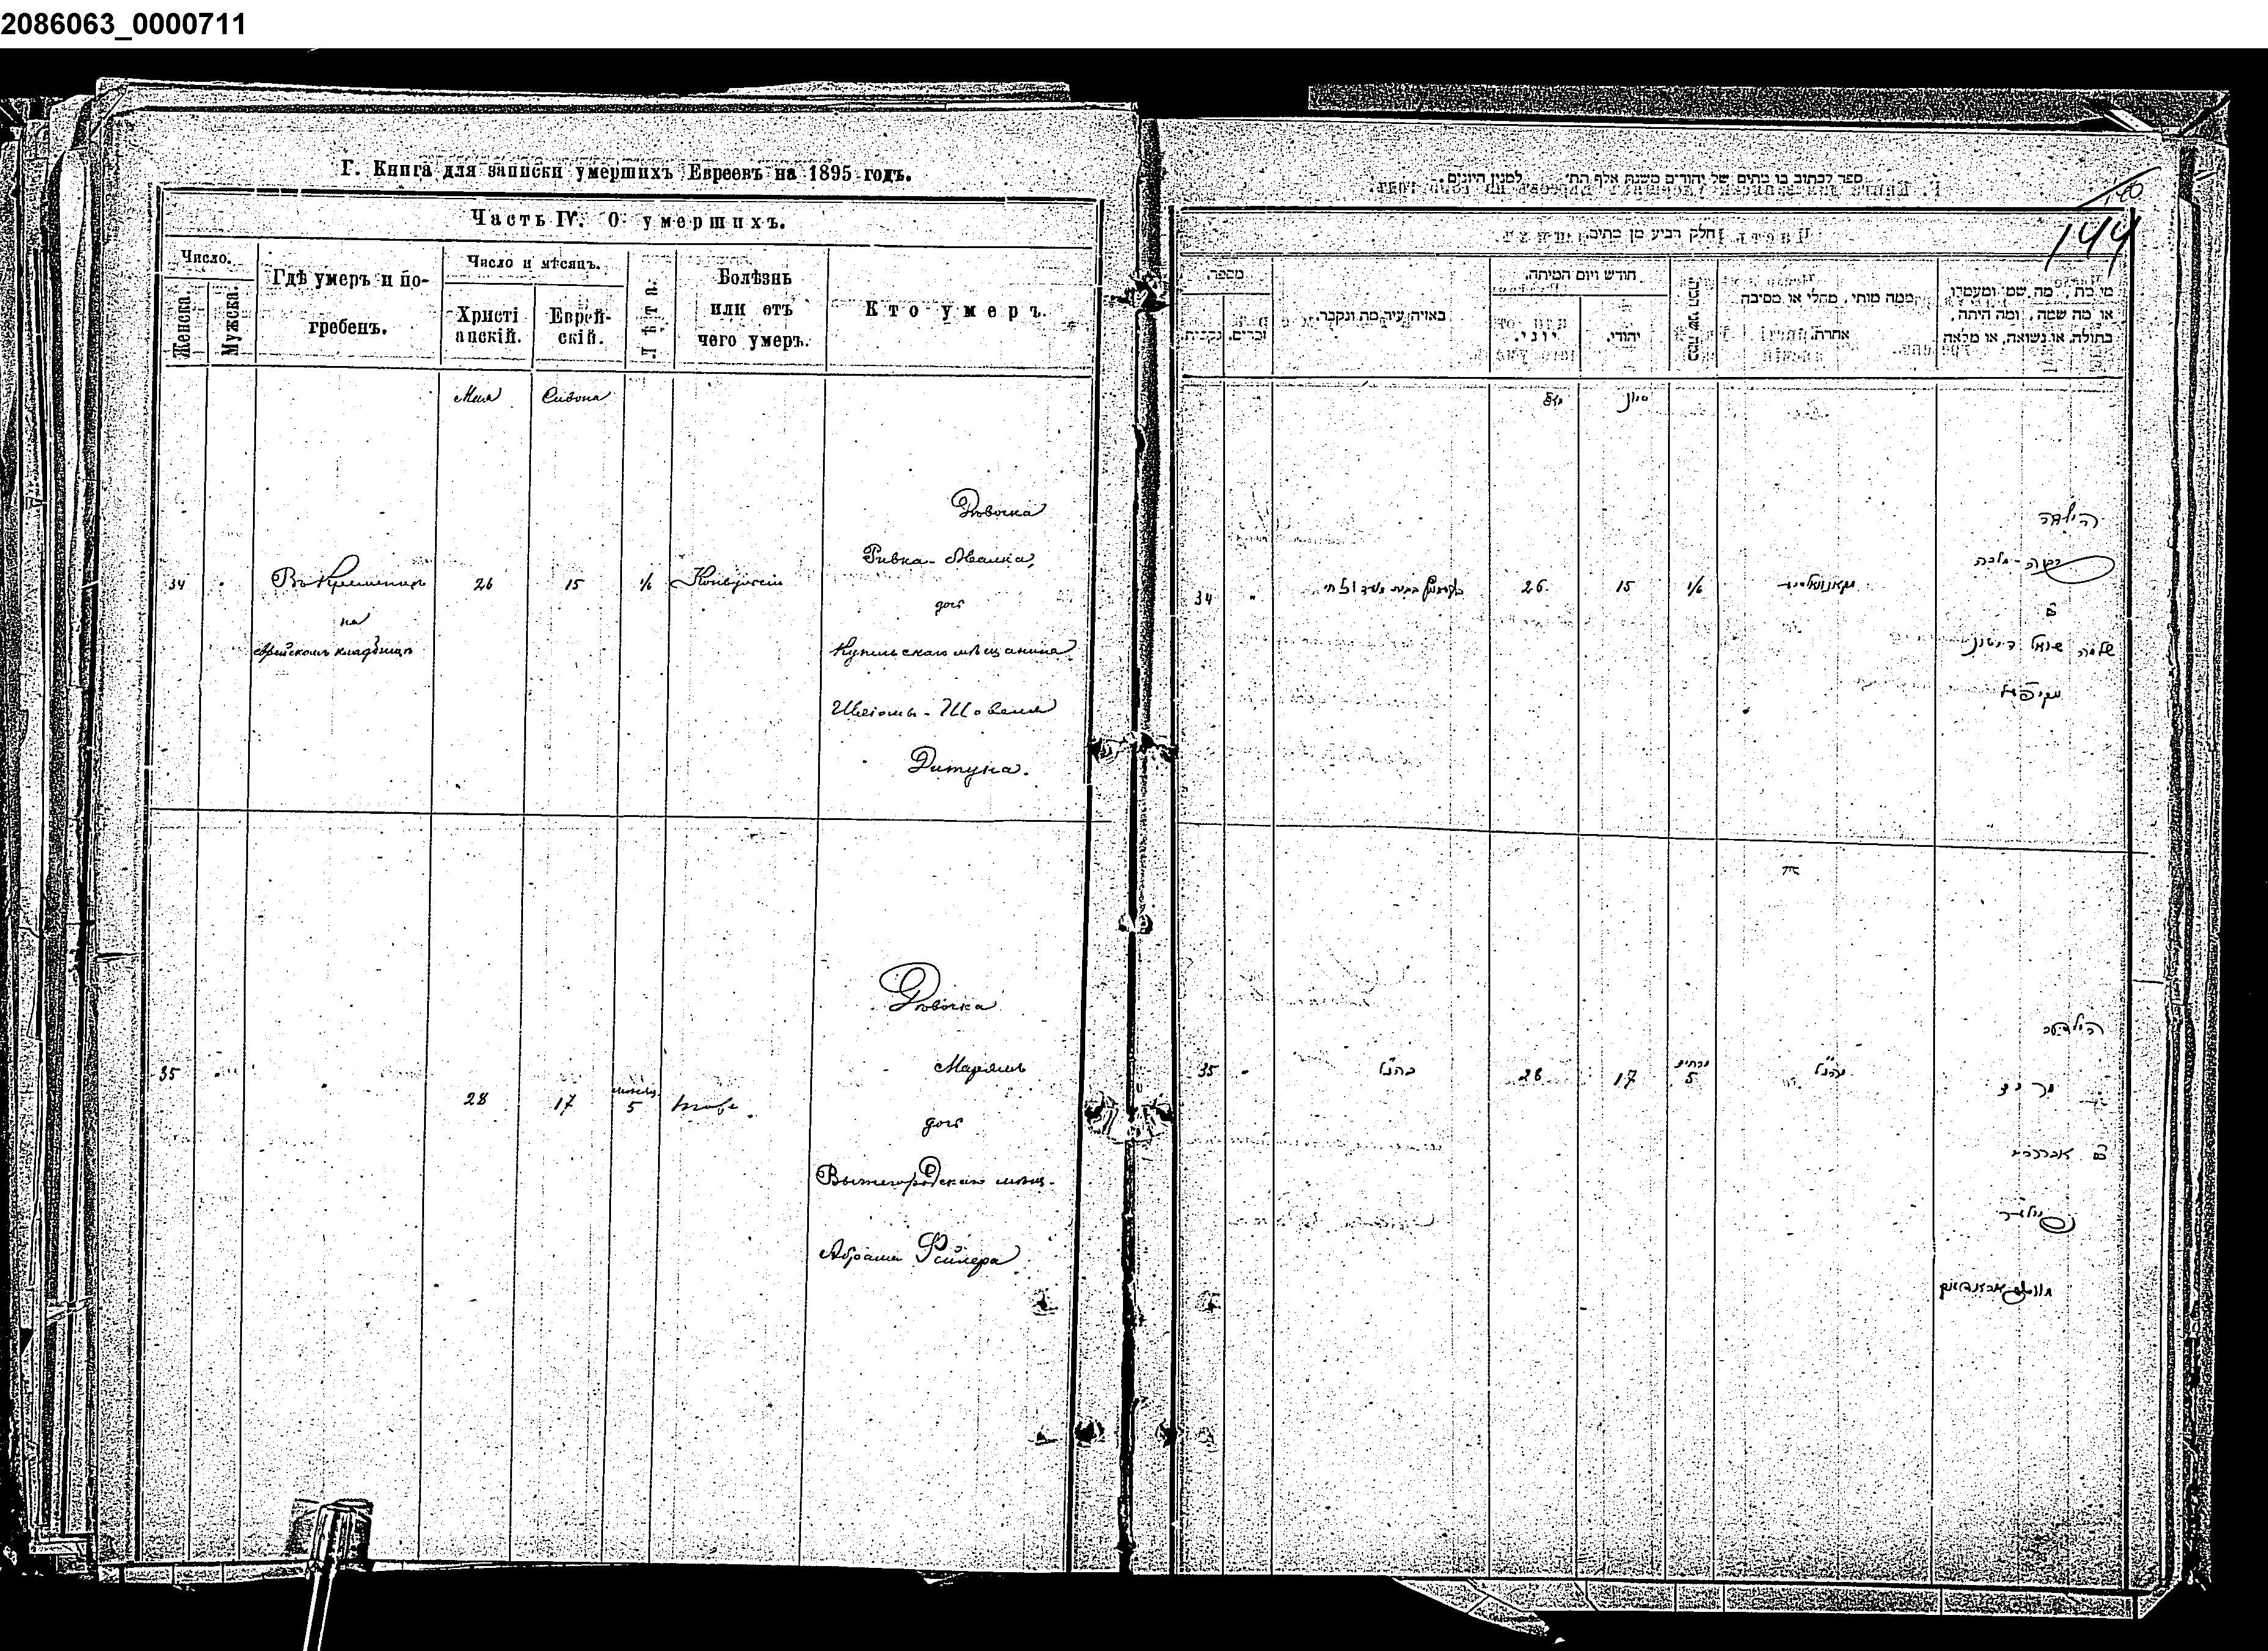 2086063_0000711
Г. Книга для записки умершихъ Евреевъ на 1895 годъ.
Часть IV. О умершихъ.
Число.
Женска.
Мужска.
Гдѣ умеръ и по-
гребенъ.
Число и мѣсяцъ.
Христі
анскій.
Еврей-
скій.
Лѣта.
Болѣзнь
или отъ
чего умеръ.
Кто умеръ.
Мая
Сивона
34
Въ Кременцѣ
на
еврейскомъ кладбищѣ
26
15
1/6
Конвульсіи
Дѣвочка
Ривка-Малка,
дочь
Купельскаго мѣщанина
Шлёмы-Шовеля
Дитуна.
35
28
17
5
Дѣвочка
Маріямъ
дочь
Вышегородскаго мѣщ.
Абрама Фейлера
ספר לכתוב בו מתים של יהודים משנת אלף תת׳ למנין היונים.
144
חלק רביע מן מתים
מספר.
נקבות.
זכרים.
באיזה עיר מת ונקבר.
חודש ויום המיתה.
יוני.
יהודי.
כמה שני
ממה מותי, מחלי או מסיבה
אחרת.
מי מת, מה שמו ומעמדו,
או מה שמה, ומה היתה,
בתולה, או נשואה, או מלאה
מאי
סיון
34
26
15
1/6
הילדה
רבקה-מלכה
בת
שלמה שואל דיטון
מקופיל
35
כהנ״ל
28
17
5
כהנ״ל
הילדה
מרים
בת אברהם
פיילער